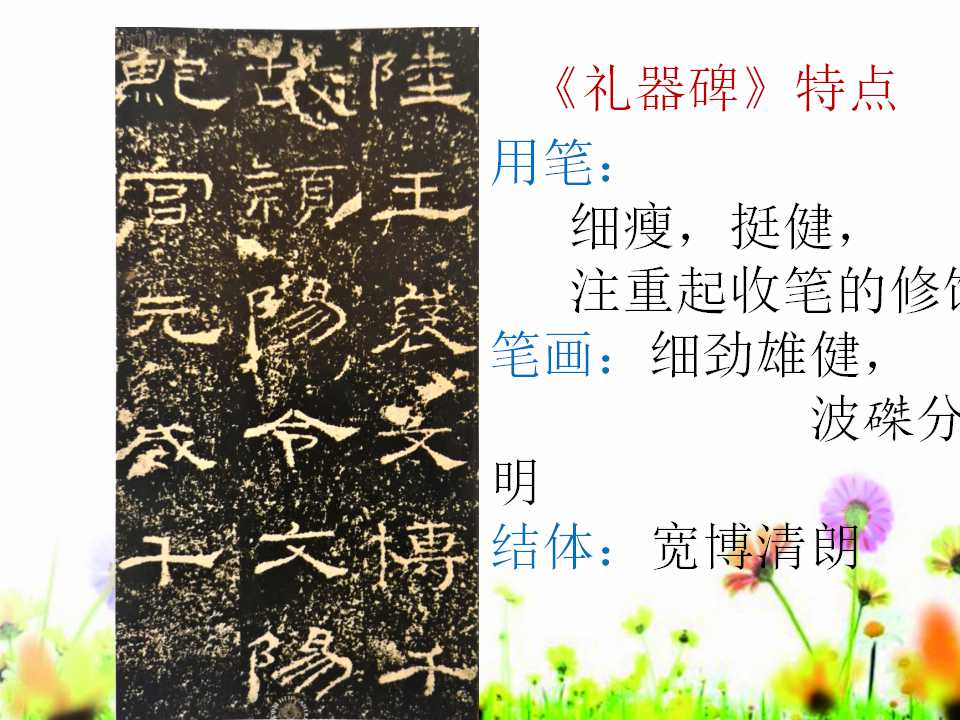 陸王褒文博千
故穎陽令文陽
鮑宮元威千
《礼器碑》特点
用笔：
细瘦，挺健，
注重起收笔的修
笔画：细劲雄健，
波磔分
明
结体：宽博清朗